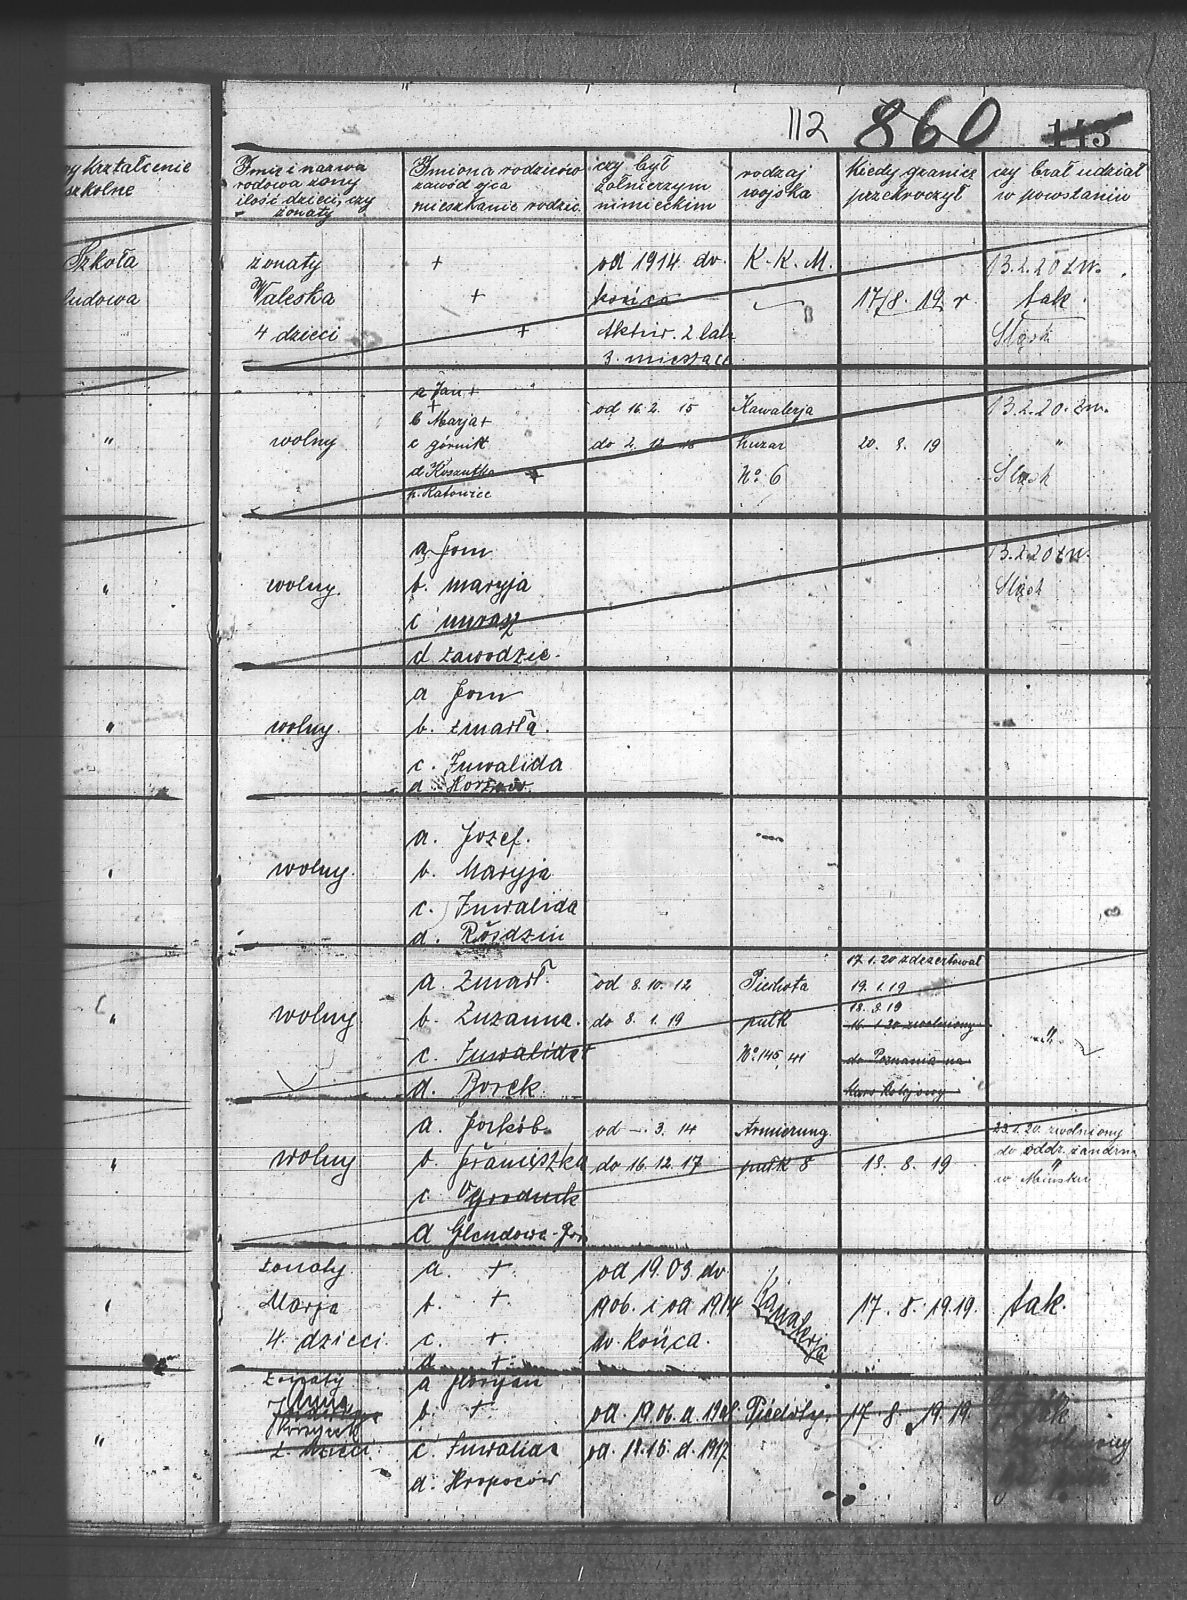 112 860 113
wykształcenie
szkolne
Imię i nazwa
rodowa żony
ilość dzieci, czy
żonaty
Imiona rodziców
zawód ojca
mieszkanie rodzic.
czy był
żołnierzym
nimieckim
rodzaj
wojska
Kiedy granicę
przekroczył
czy brał udział
w powstaniu
Szkoła
ludowa
żonaty
Waleska
4 dzieci
+
+
+
od 1914 do
końca
Aktiw. 2 lata
3. miesiące
K. K. M.
17/8. 19 r
13.2.20 zw.
tak.
Śląsk
"
wolny
a Jan +
+
b Marja +
c górnik
d Koszutka +
p. Katowice
od 16. 2. 15
do 2. 12. 18
Kawalerja
huzar
No. 6
20. 8. 19
13.2.20. zw.
"
Śląsk
"
wolny.
a. Jom
b. maryja
c murasz
d zawodzie.
13.2.20 zw.
Śląsk
"
wolny.
a Jom
b. zmarła.
c. Inwalida
d.
wolny.
a. Jozef.
b. Maryja
c. Inwalida
d. Rosdzin
"
wolny
a. Zmarł.
b. Zuzanna.
c. Inwalida
d. Borek
od 8. 10. 12
do 8. 1. 19
Piechota
pułk
No. 145, 41
17.1.20 zdezertował
19. 1. 19
18. 3. 19
16. 1.20 zwolniony
do Poznania na
"
wolny
a. Jackób.
b. Franciszka
c. Ogrodnik
d
od —. 3. 14
do 16. 12. 17
Armierung
pułk 8
18. 8. 19
23.1.20. zwolniony
do oddz. żandrm
w Mińsku
żonaty.
Marja
4. dzieci.
a. +
b. +
c. +
d +
od 19.03. do
1906. i od 1914
do końca.
Kawalerja
17. 8. 1919.
tak.
"
żonaty
Anna
2 dzieci.
a Florjan
b. +
c. Inwalida
d. Kropoców
od. 1906. d 1908.
od 18.15. d. 1917
Piechoty.
17. 8. 1919.
tak